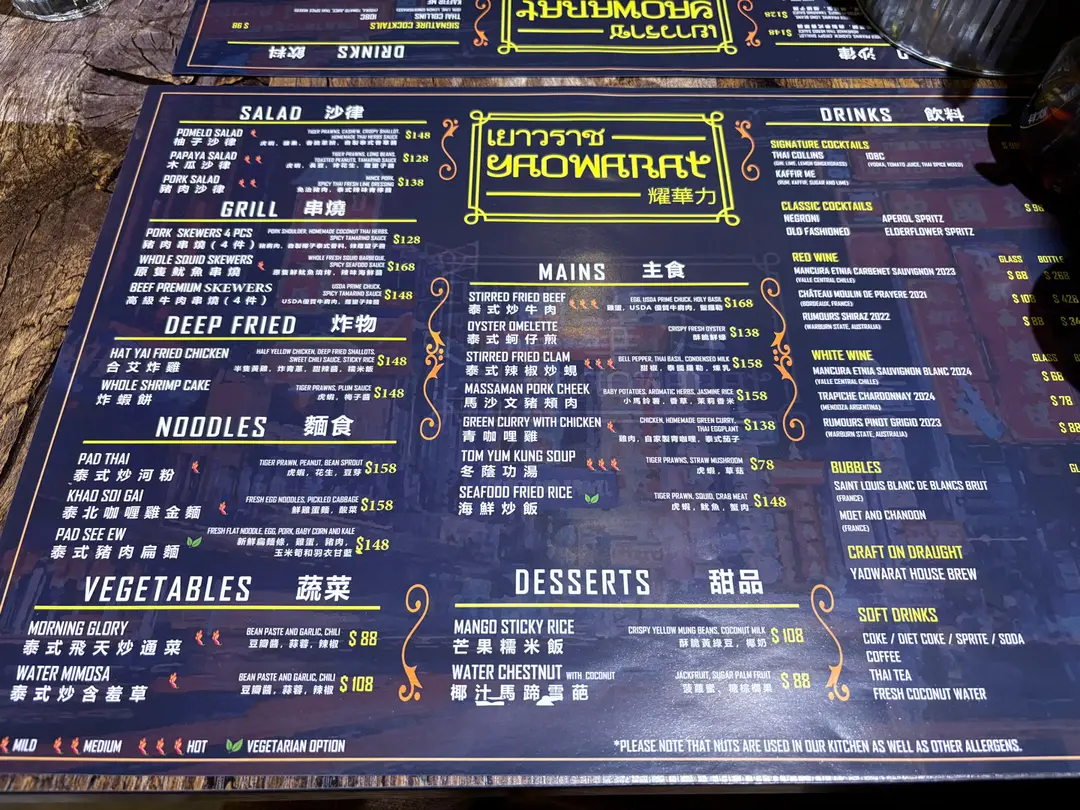 SALAD 沙律
POMELO SALAD
柚子沙律
TIGER PRAWNS, CASHEW, CRISPY SHALLOT,
HOMEMADE THAI HERBS SAUCE
$148
PAPAYA SALAD
木瓜沙律
TIGER PRAWNS, LONG BEANS,
TOASTED PEANUTS, TAMARIND SAUCE
$128
PORK SALAD
豬肉沙律
MINCE PORK,
SPICY THAI FRESH LIME DRESSING
$138
GRILL 串燒
PORK SKEWERS 4 PCS
豬肉串燒(4件)
PORK SHOULDER, HOMEMADE COCONUT THAI HERBS,
SPICY TAMARIND SAUCE
$128
WHOLE SQUID SKEWERS
原隻魷魚串燒
WHOLE FRESH SQUID BARBEQUE,
SPICY SEAFOOD SAUCE
$168
BEEF PREMIUM SKEWERS
高級牛肉串燒(4件)
USDA PRIME CHUCK,
SPICY TAMARIND SAUCE
$148
DEEP FRIED 炸物
HAT YAI FRIED CHICKEN
合艾炸雞
HALF YELLOW CHICKEN, DEEP FRIED SHALLOTS,
SWEET CHILI SAUCE, STICKY RICE
半隻黃雞, 炸青蔥, 甜辣醬, 糯米飯
$148
WHOLE SHRIMP CAKE
炸蝦餅
TIGER PRAWNS, PLUM SAUCE
虎蝦, 梅子醬
$148
NOODLES 麵食
PAD THAI
泰式炒河粉
TIGER PRAWN, PEANUT, BEAN SPROUT
虎蝦, 花生, 豆芽
$158
KHAO SOI GAI
泰北咖喱雞金麵
FRESH EGG NOODLES, PICKLED CABBAGE
鮮雞蛋麵, 酸菜
$158
PAD SEE EW
泰式豬肉扁麵
FRESH FLAT NOODLE, EGG, PORK, BABY CORN AND KALE
新鮮扁麵條, 雞蛋, 豬肉,
玉米筍和羽衣甘藍
$148
VEGETABLES 蔬菜
MORNING GLORY
泰式飛天炒通菜
BEAN PASTE AND GARLIC, CHILI
豆瓣醬, 蒜蓉, 辣椒
$ 88
WATER MIMOSA
泰式炒含羞草
BEAN PASTE AND GARLIC, CHILI
豆瓣醬, 蒜蓉, 辣椒
$ 108
MILD MEDIUM HOT VEGETARIAN OPTION
เยาวราช
YAOWARAT
耀華力
MAINS 主食
STIRRED FRIED BEEF
泰式炒牛肉
EGG, USDA PRIME CHUCK, HOLY BASIL
$168
OYSTER OMELETTE
泰式蚵仔煎
CRISPY FRESH OYSTER
酥脆鮮蠔
$138
STIRRED FRIED CLAM
泰式辣椒炒蜆
BELL PEPPER, THAI BASIL, CONDENSED MILK
甜椒, 泰國羅勒, 煉乳
$158
MASSAMAN PORK CHEEK
馬沙文豬頰肉
BABY POTATOES, AROMATIC HERBS, JASMINE RICE
小馬鈴薯, 香草, 茉莉香米
$158
GREEN CURRY WITH CHICKEN
青咖哩雞
CHICKEN, HOMEMADE GREEN CURRY,
THAI EGGPLANT
雞肉, 自家製青咖喱, 泰式茄子
$138
TOM YUM KUNG SOUP
冬蔭功湯
TIGER PRAWNS, STRAW MUSHROOM
虎蝦, 草菇
$78
SEAFOOD FRIED RICE
海鮮炒飯
TIGER PRAWN, SQUID, CRAB MEAT
虎蝦, 魷魚, 蟹肉
$148
DESSERTS 甜品
MANGO STICKY RICE
芒果糯米飯
CRISPY YELLOW MUNG BEANS, COCONUT MILK
酥脆黃綠豆, 椰奶
$ 108
WATER CHESTNUT WITH COCONUT
椰汁馬蹄雪葩
JACKFRUIT, SUGAR PALM FRUIT
菠蘿蜜, 糖棕櫚果
$ 88
*PLEASE NOTE THAT NUTS ARE USED IN OUR KITCHEN AS WELL AS OTHER ALLERGENS.
DRINKS 飲料
SIGNATURE COCKTAILS
THAI COLLINS
(GIN, LIME, LEMON GINGERGRASS)
IOBC
(VODKA, TOMATO JUICE, THAI SPICE MIXED)
KAFFIR ME
(RUM, KAFFIR, SUGAR AND LIME)
CLASSIC COCKTAILS
$ 98
NEGRONI
APEROL SPRITZ
OLD FASHIONED
ELDERFLOWER SPRITZ
RED WINE
GLASS BOTTLE
MANCURA ETNIA CARBENET SAUVIGNON 2023
(VALLE CENTRAL CHILE)
$ 68 $ 268
CHÂTEAU MOULIN DE PRAYERE 2021
(BORDEAUX, FRANCE)
$ 108 $ 428
RUMOURS SHIRAZ 2022
(WARBURN STATE, AUSTRALIA)
$ 88
WHITE WINE
GLASS
MANCURA ETNIA SAUVIGNON BLANC 2024
(VALLE CENTRAL CHILE)
$ 68
TRAPICHE CHARDONNAY 2024
(MENDOZA ARGENTINA)
$ 78
RUMOURS PINOT GRIGIO 2023
(WARBURN STATE, AUSTRALIA)
$ 88
BUBBLES
SAINT LOUIS BLANC DE BLANCS BRUT
(FRANCE)
MOET AND CHANDON
(FRANCE)
CRAFT ON DRAUGHT
YAOWARAT HOUSE BREW
SOFT DRINKS
COKE / DIET COKE / SPRITE / SODA
COFFEE
THAI TEA
FRESH COCONUT WATER